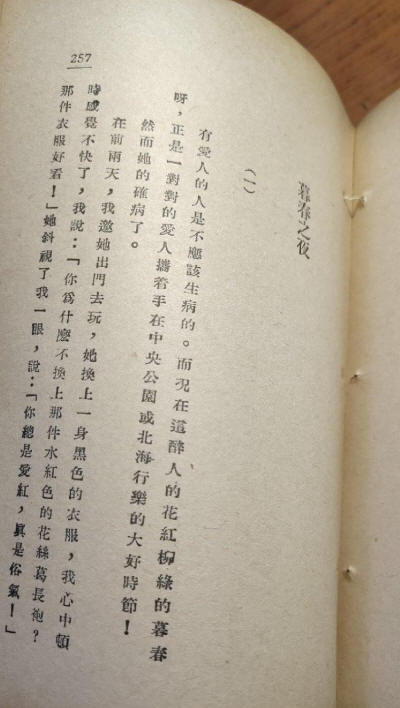 257
暮春之夜
(一)
有愛人的人是不應該生病的。而況在這醉人的花紅柳綠的暮春
呀，正是一對對的愛人攜着手在中央公園或北海行樂的大好時節！
然而她的確病了。
在前兩天，我邀她出門去玩，她換上一身黑色的衣服，我心中頓
時感覺不快了，我說：「你爲什麼不換上那件水紅色的花絲葛長袍？
那件衣服好看！」她斜視了我一眼，說：「你總是愛紅，眞是俗氣！」